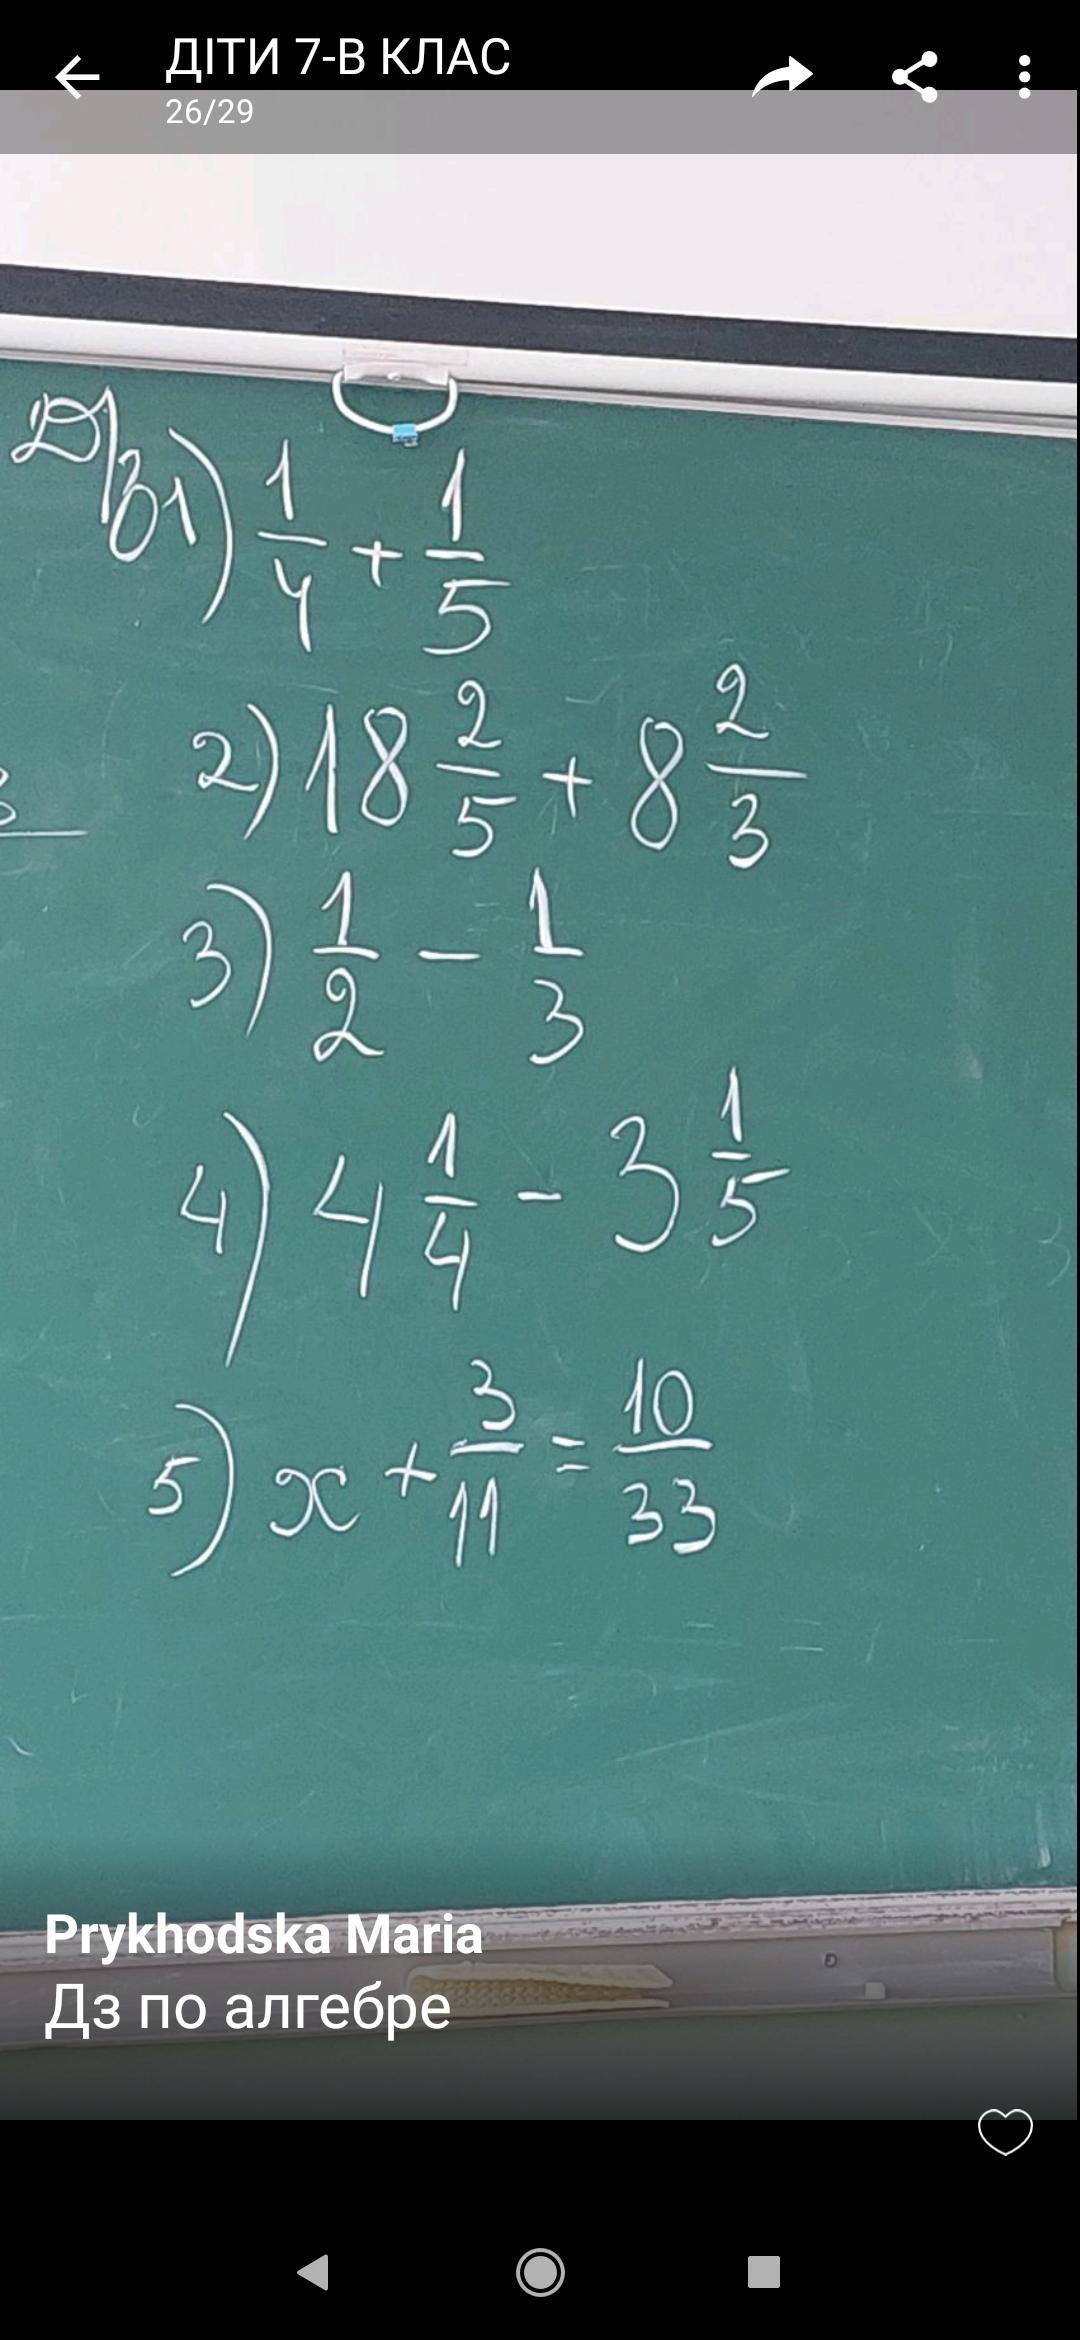 ДІТИ 7-В КЛАС
26/29
Д/з 1) 1/4 + 1/5
2) 18 2/5 + 8 2/3
3) 1/2 - 1/3
4) 4 1/4 - 3 1/5
5) x + 3/11 = 10/33
Prykhodska Maria
Дз по алгебре